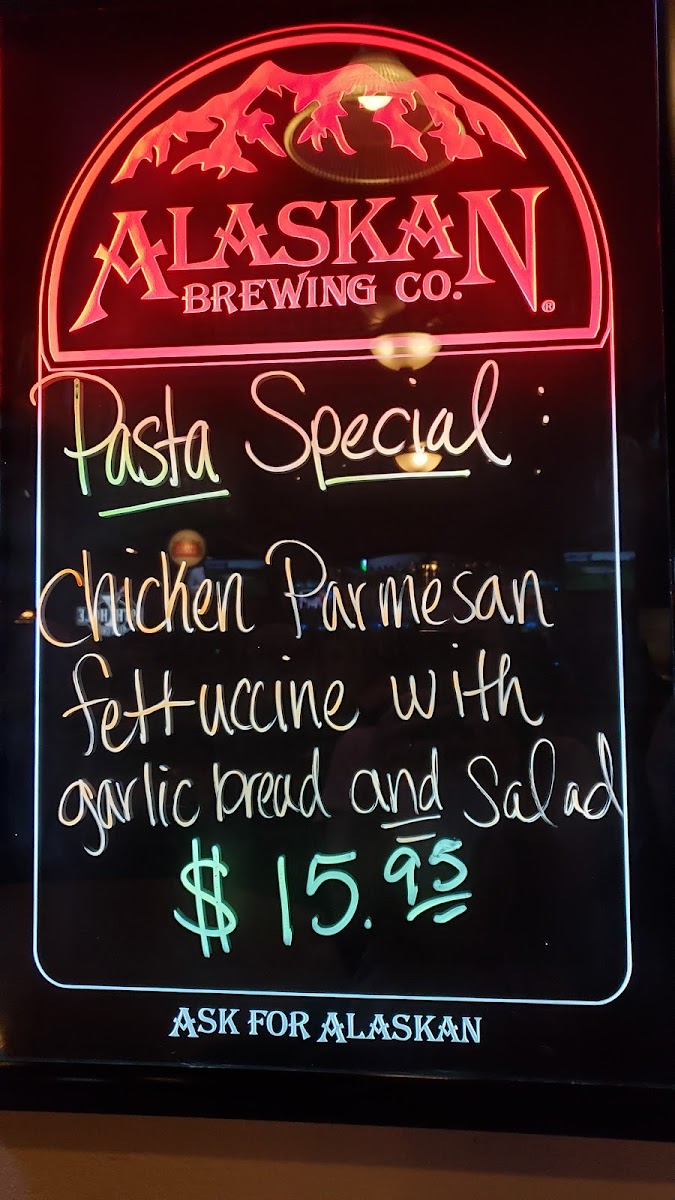 ALASKAN
BREWING CO.®
Pasta Special:
chicken Parmesan
fettuccine with
garlic bread and Salad
$15.95
ASK FOR ALASKAN